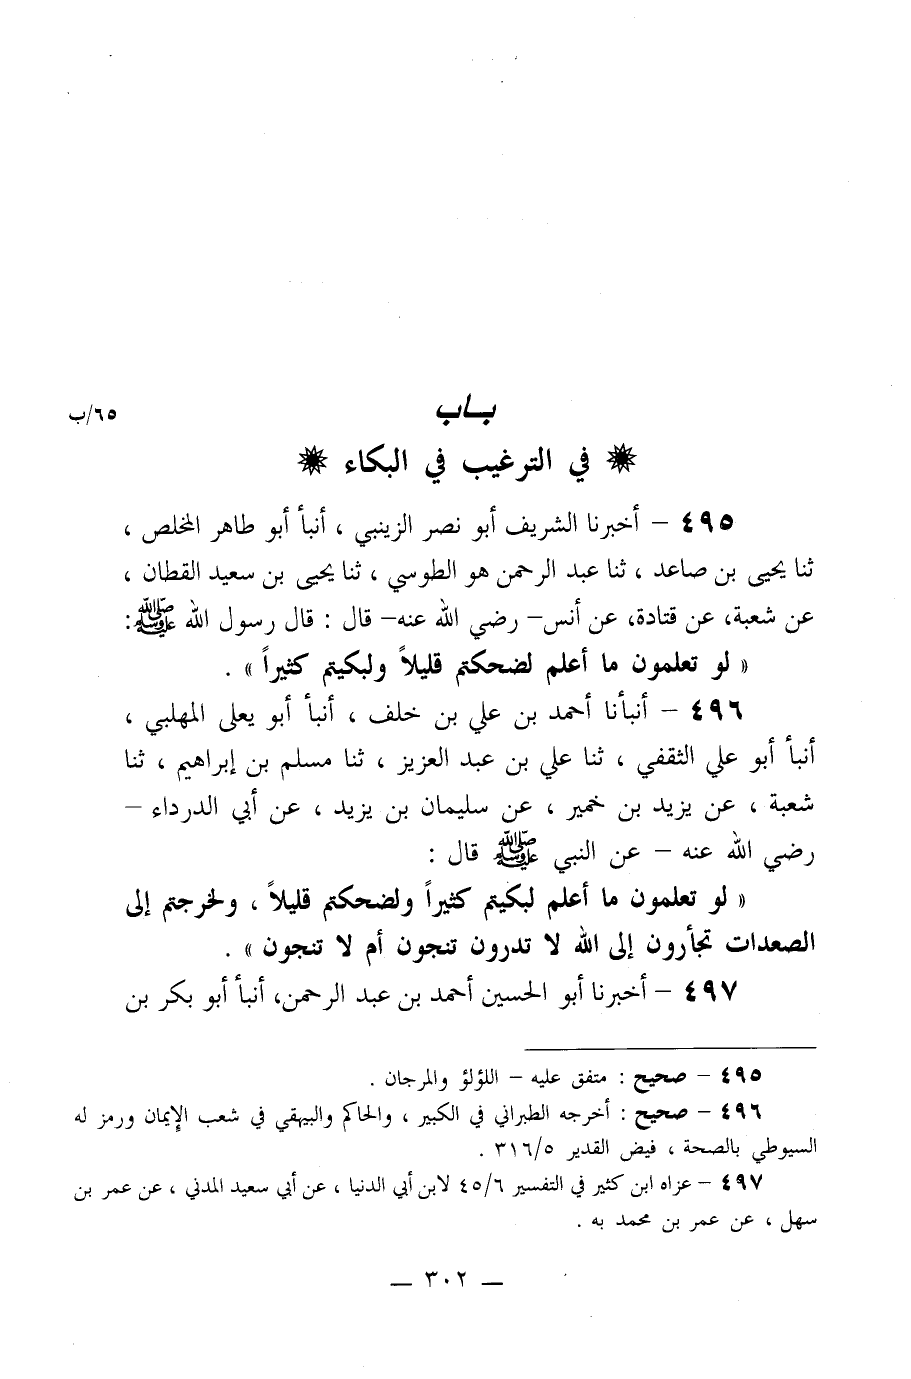 باب
٦٥/ب
في الترغيب في البكاء
٤٩٥ – أخبرنا الشريف أبو نصر الزينبي ، أنبأ أبو طاهر المخلص ،
ثنا يحيى بن صاعد ، ثنا عبد الرحمن هو الطوسي ، ثنا يحيى بن سعيد القطان ،
عن شعبة، عن قتادة، عن أنس– رضي الله عنه– قال : قال رسول الله ﷺ:
« لو تعلمون ما أعلم لضحكتم قليلاً ولبكيتم كثيراً » .
٤٩٦ – أنبأنا أحمد بن علي بن خلف ، أنبأ أبو يعلى المهلبي ،
أنبأ أبو علي الثقفي ، ثنا علي بن عبد العزيز ، ثنا مسلم بن إبراهيم ، ثنا
شعبة ، عن يزيد بن خمير ، عن سليمان بن يزيد ، عن أبي الدرداء –
رضي الله عنه – عن النبي ﷺ قال :
« لو تعلمون ما أعلم لبكيتم كثيراً ولضحكتم قليلاً ، ولخرجتم إلى
الصعدات تجأرون إلى الله لا تدرون تنجون أم لا تنجون » .
٤٩٧ – أخبرنا أبو الحسين أحمد بن عبد الرحمن، أنبأ أبو بكر بن
٤٩٥ – صحيح : متفق عليه – اللؤلؤ والمرجان .
٤٩٦ – صحيح : أخرجه الطبراني في الكبير ، والحاكم والبيهقي في شعب الإيمان ورمز له
السيوطي بالصحة ، فيض القدير ٣١٦/٥ .
٤٩٧ – عزاه ابن كثير في التفسير ٤٥/٦ لابن أبي الدنيا ، عن أبي سعيد المدني ، عن عمر بن
سهل ، عن عمر بن محمد به .
— ٣٠٢ —